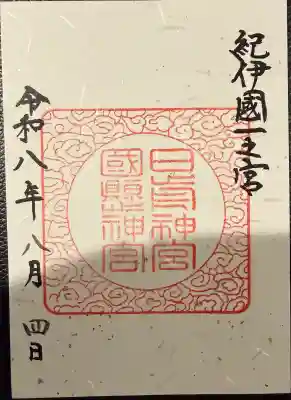 紀伊國一之宮
日前神宮
國懸神宮
令和八年八月四日